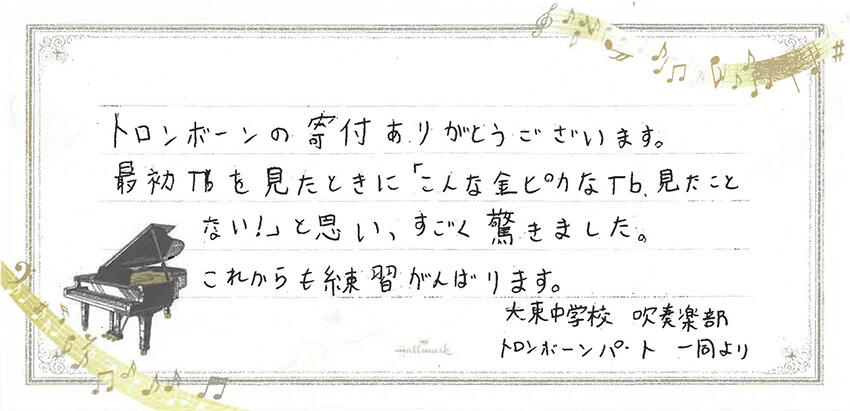 トロンボーンの寄付ありがとうございます。
最初Tbを見たときに「こんな金ピカなTb、見たこと
ない!」と思い、すごく驚きました。
これからも練習がんばります。
大東中学校 吹奏楽部
トロンボーンパート 一同より
Hallmark